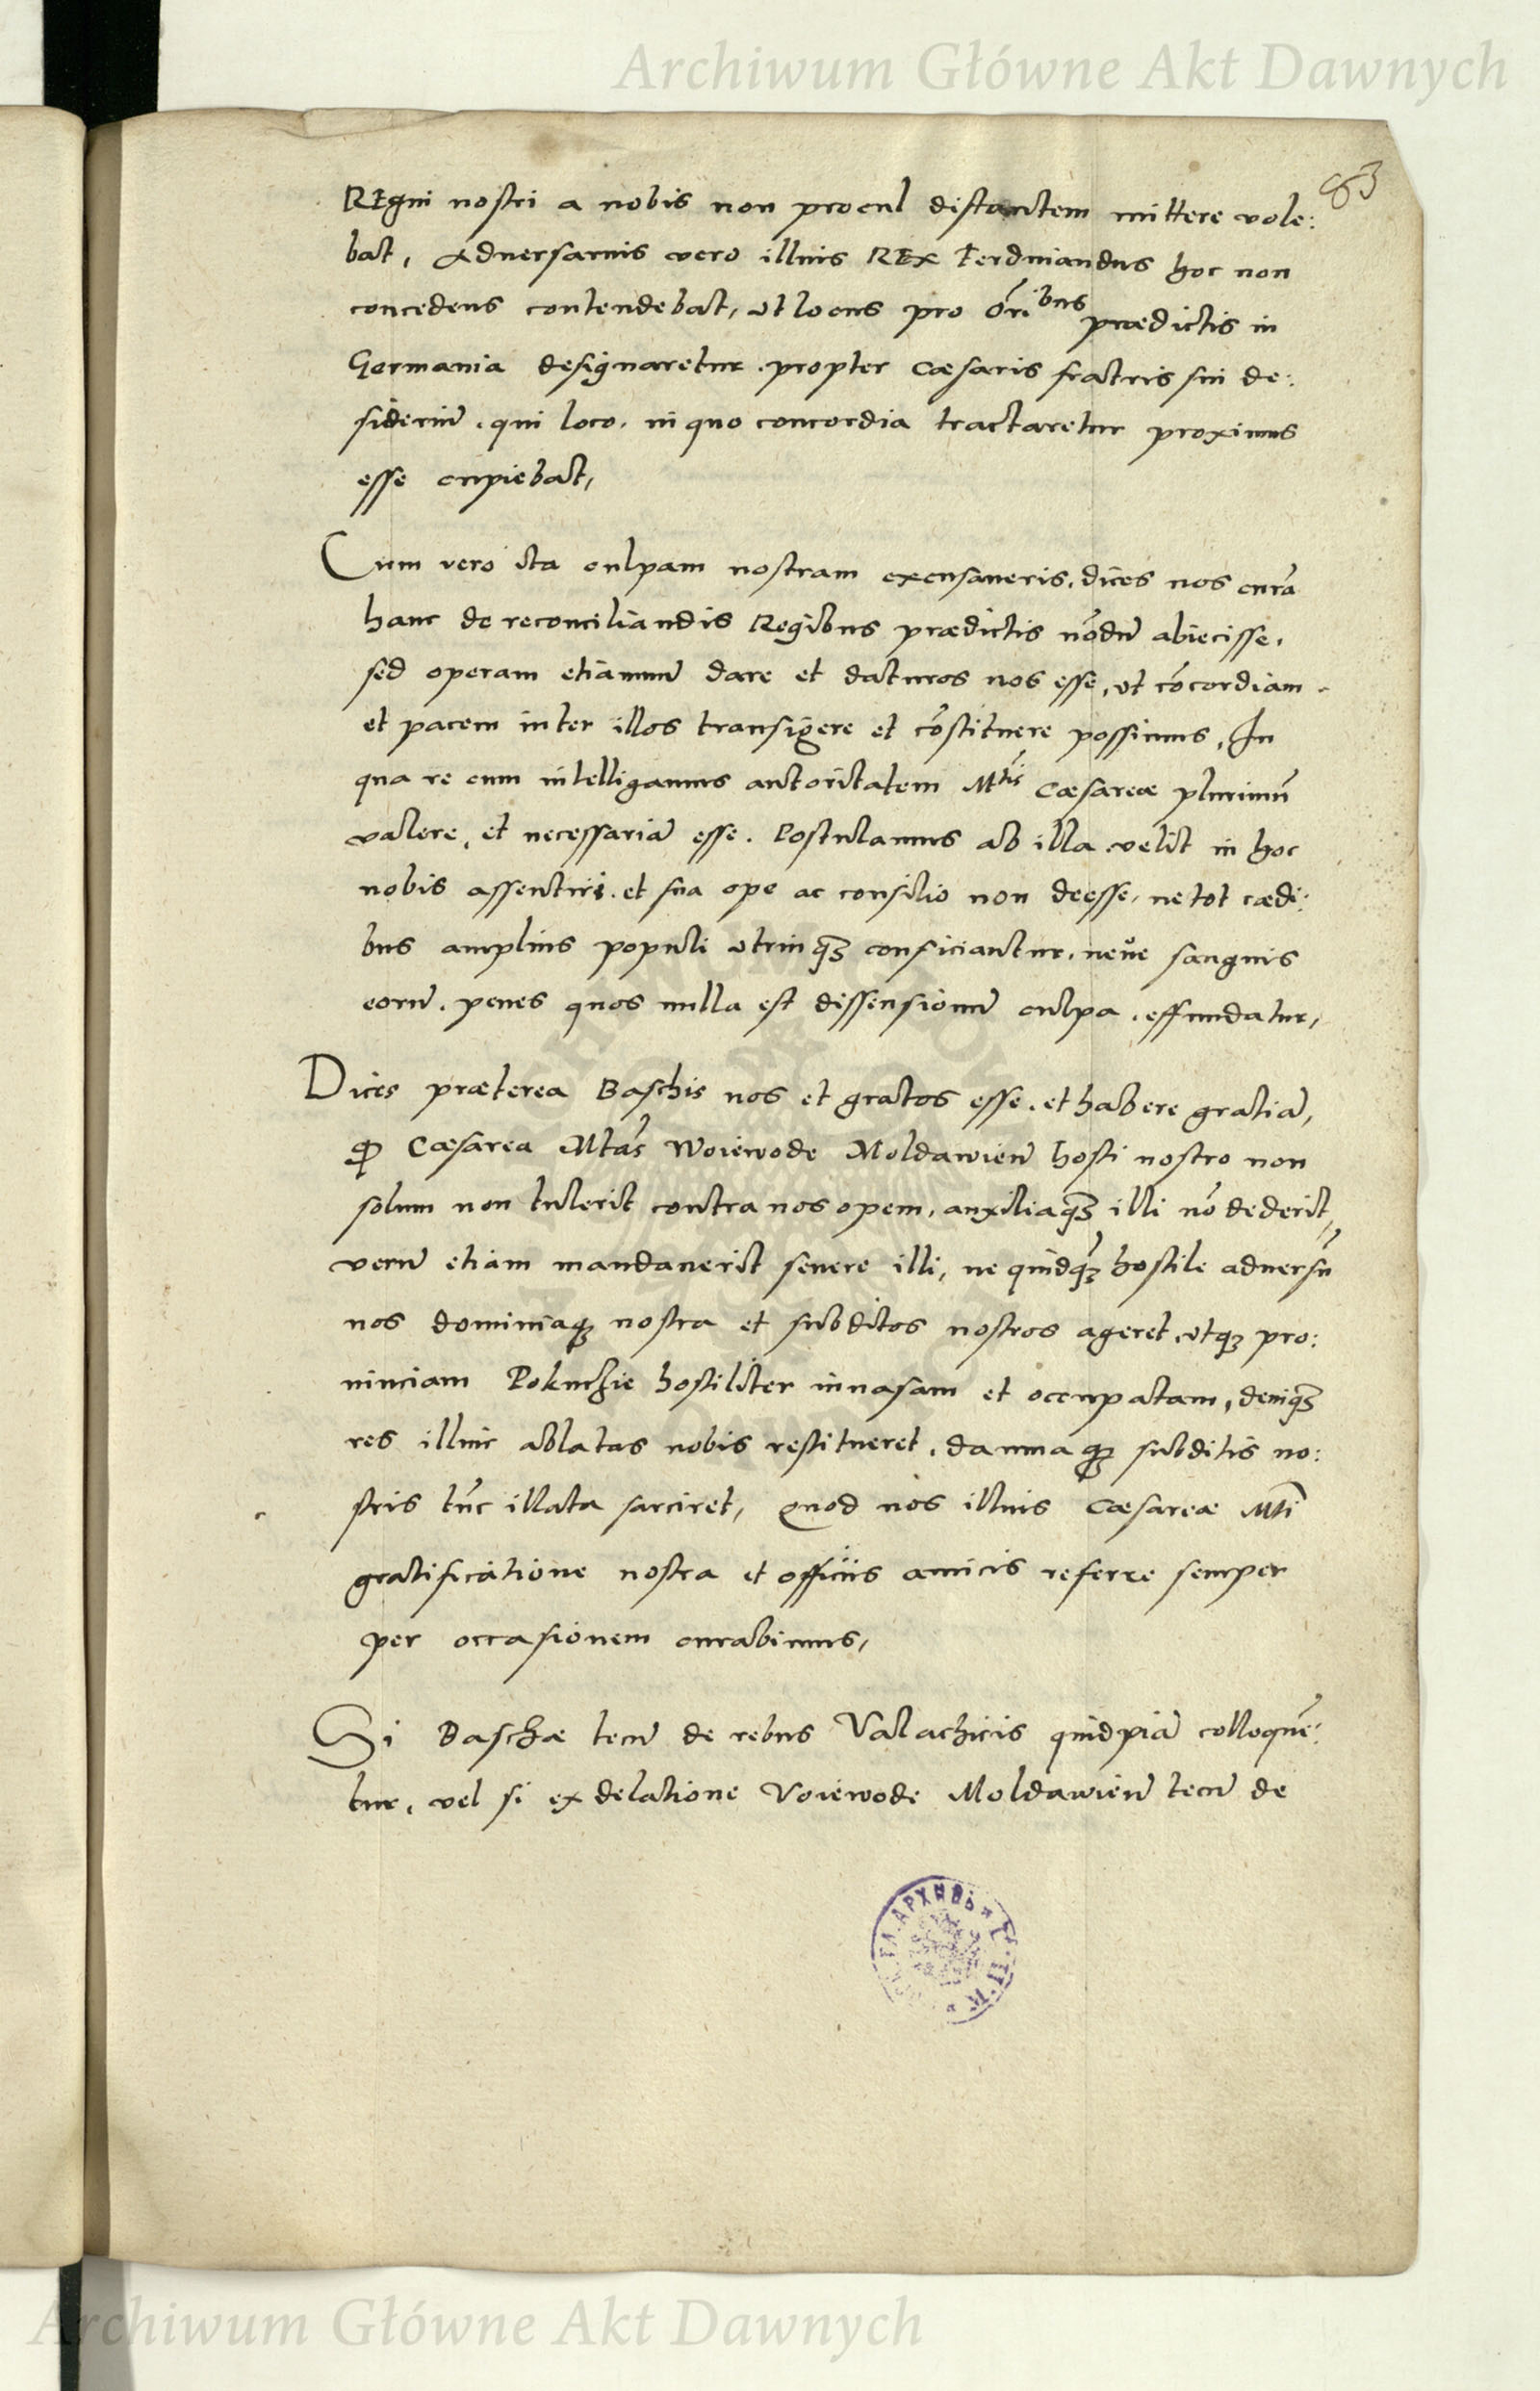 Archiwum Główne Akt Dawnych
83
REgni nostri a nobis non procul distantem mittere vole:
bat, Aduersarius vero illius REx Ferdinandus hoc non
concedens contendebat, vt locus pro Orībus prædictis in
Germania designaretur. propter Cæsaris fratris sui de:
sideriū. qui loco. in quo concordia tractaretur proximus
esse cupiebat,
Cum vero ita culpam nostram excusaueris. dices nos curā
hanc de reconciliandis Regibus prædictis nōdū abiecisse.
sed operam etiamnū dare et daturos nos esse, vt cōcordiam
et pacem inter illos transigere et cōstituere possimus, In
qua re cum intelligamus autoritatem Mtis Cæsareæ plurimū
valere, et necessariā esse. Postulamus ab illa velit in hoc
nobis assentiri. et sua ope ac consilio non deesse, ne tot cædi:
bus amplius populi vtrinq3 conficiantur. neue sanguis
eorū. penes quos nulla est dissensionū culpa. effundatur,
Dices præterea Baschis nos et gratos esse. et habere gratiā,
qd Cæsarea Mtas Woiewode Moldawień hosti nostro non
solum non tulerit contra nos opem, auxiliaq3 illi nō dederit,
verū etiam mandauerit seuere illi, ne quidq3 hostile aduersū
nos dominiaq3 nostra et subditos nostros ageret, vtq3 pro:
uinciam Pokuczie hostiliter inuasam et occupatam, deniq3
res illinc ablatas nobis restitueret. damnaq3 subditis no:
stris tūc illata sarciret, Quod nos illius Cæsareæ Mti
gratificatione nostra et officiis amicis referre semper
per occasionem curabimus,
Si Baschæ tecū de rebus Valachicis quidpiā colloquē:
tur, vel si ex delatione Voiewode Moldawień tecū de
АРХИВЪ
Archiwum Główne Akt Dawnych